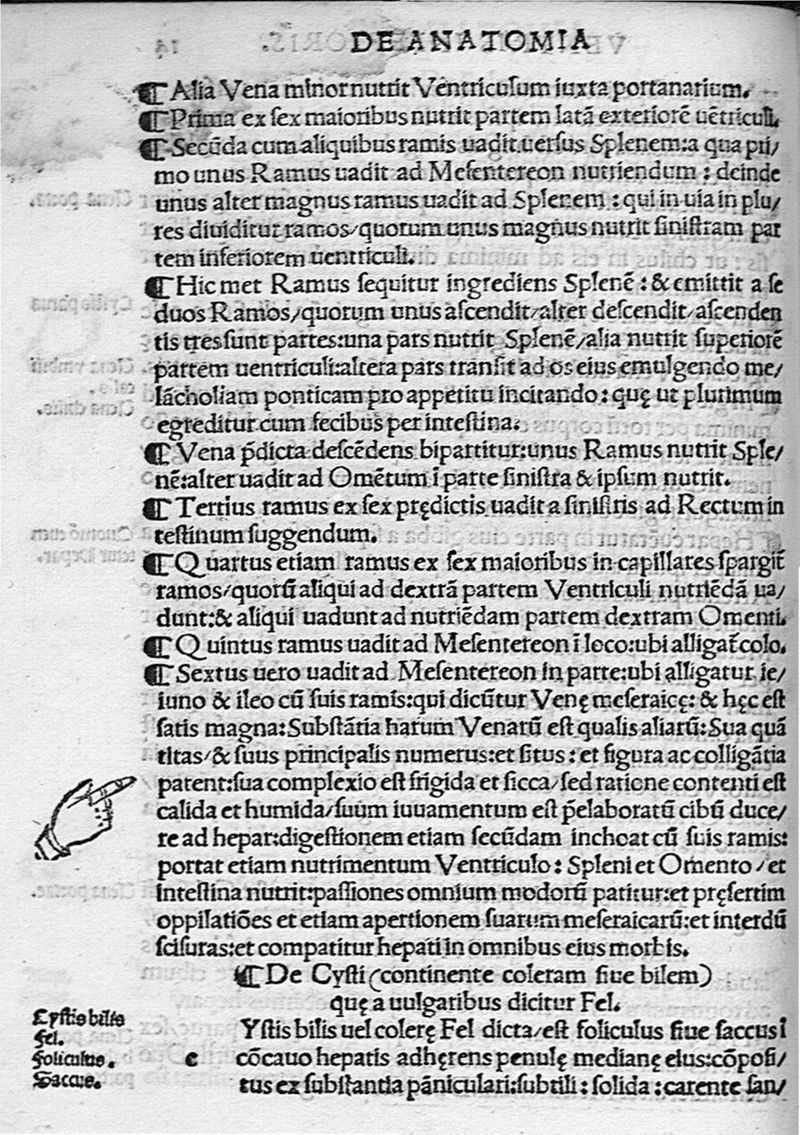 DE ANATOMIA
¶ Alia Vena minor nutrit Ventriculum iuxta portanarium.
¶ Prima ex ſex maioribus nutrit partem latã exteriorẽ uẽtriculi.
¶ Secũda cum aliquibus ramis uadit uerſus Splenem: a qua pri/
mo unus Ramus uadit ad Meſentereon nutriendum: deinde
unus alter magnus ramus uadit ad Splenem: qui in uia in plu/
res diuiditur ramos/quorum unus magnus nutrit ſiniſtram par
tem inferiorem uentriculi.
¶ Hic met Ramus ſequitur ingrediens Splenẽ: & emittit a ſe
duos Ramos/quorum unus aſcendit/alter deſcendit/aſcenden
tis tres ſunt partes: una pars nutrit Splenẽ/alia nutrit ſuperiorẽ
partem uentriculi: altera pars tranſit ad os eius emulgendo me/
lãcholiam ponticam pro appetitu incitando: quę ut plurimum
egreditur cum fecibus per inteſtina.
¶ Vena p̃dicta deſcẽdens bipartitur: unus Ramus nutrit Sple/
nẽ: alter uadit ad Omẽtum ĩ parte ſiniſtra & ipſum nutrit.
¶ Tertius ramus ex ſex prędictis uadit a ſiniſtris ad Rectum in
teſtinum ſuggendum.
¶ Quartus etiam ramus ex ſex maioribus in capillares ſpargit̃
ramos/quorũ aliqui ad dextrã partem Ventriculi nutriẽdã ua/
dunt: & aliqui uadunt ad nutriẽdam partem dextram Omenti.
¶ Quintus ramus uadit ad Meſentereon ĩ loco: ubi alligat̃ colo.
¶ Sextus uero uadit ad Meſentereon in parte: ubi alligatur ie/
iuno & ileo cũ ſuis ramis: qui dicũtur Venę meſeraicę: & hęc eſt
ſatis magna: Subſtãtia harum Venarũ eſt qualis aliarũ: Sua quã
titas/& ſuus principalis numerus: et ſitus: et figura ac colligãtia
patent: ſua complexio eſt frigida et ſicca/ſed ratione contenti eſt
calida et humida/ſuum iuuamentum eſt p̃elaboratũ cibũ duce/
re ad hepar: digeſtionem etiam ſecũdam inchoat cũ ſuis ramis:
portat etiam nutrimentum Ventriculo: Spleni et Omento/et
inteſtina nutrit: paſſiones omnium modorũ patitur: et pręſertim
oppilatiões et etiam apertionem ſuarum meſeraicarũ: et interdũ
ſciſuras: et compatitur hepati in omnibus eius morbis.
¶ De Cyſti (continente coleram ſiue bilem)
quę a uulgaribus dicitur Fel.
Cyſtis bilis
fel.
foliculus.
Saccus.
c
Yſtis bilis uel colerę Fel dicta/eſt foliculus ſiue ſaccus ĩ
cõcauo hepatis adhęrens penulę medianę eius: cõpoſi/
tus ex ſubſtantia pãniculari: ſubtili: ſolida: carente ſan/